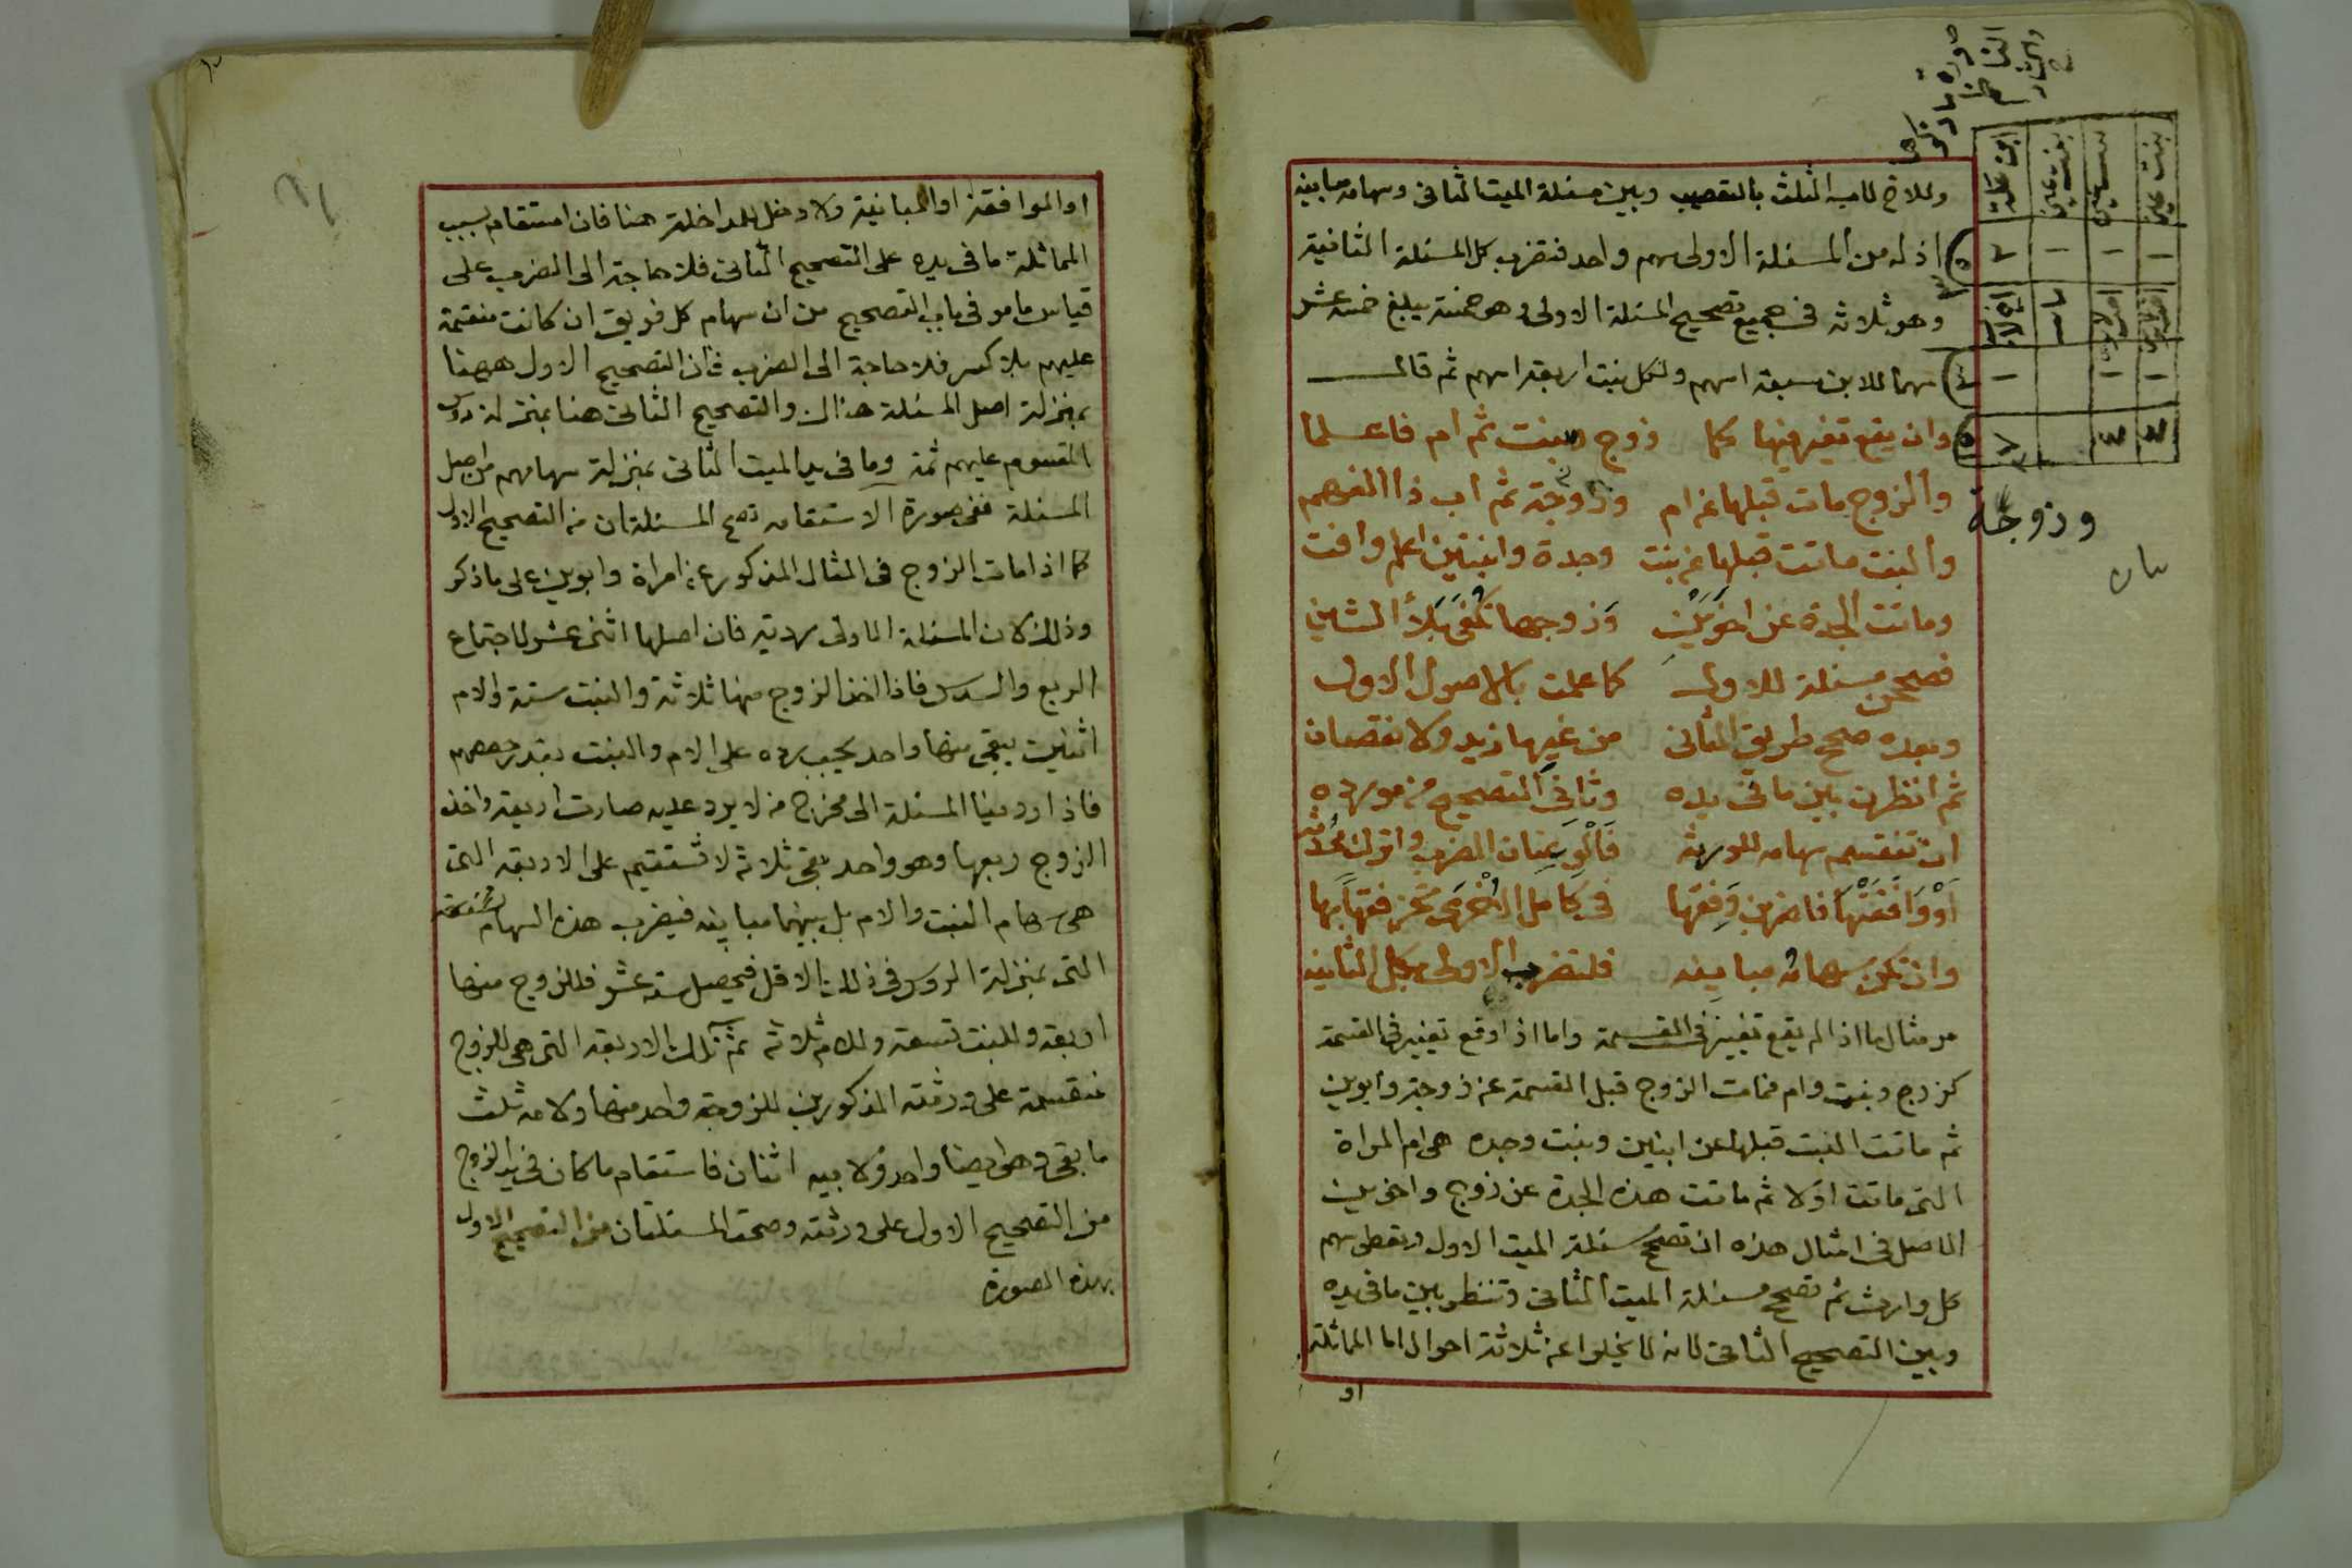 وللاخ لاب الثلث بالتعصيب وبين مسئلة الميت الثانى وسهامه مباينه
اذ له من المسئلة الاولى سهم واحد فتضرب كل المسئلة الثانية
وهو ثلاثه فى جميع تصحيح المسئلة الاولى وهو خمسة يبلغ خمسة عشر
سهما للابن سبعة اسهم ولكل بنت اربعة اسهم ثم قال
وان يقع تغير فيها كما زوج وبنت ثم ام فاعلما
والزوج مات قبلها عن ام وزوجة ثم اب ذا المفرهم
والبنت ماتت قبلها عن بنت وجدة وابنتين اعلم وافت
وماتت الجدة عن اخوين وزوجها تكفى بلا الشين
فصححن مسئلة للاول كما علمت بالاصول الاول
وبعده صحح طريق الثانى من غيرها زيد ولا نقصان
ثم انظرن بين ما فى يده وثانى التصحيح من مورده
ان تنقسم سهامه للورثه فالو عنان الضرب واترك محدثه
او وافقتها فاضربن وفقها فى كامل الاخرى تحز فقها بها
وان تكن سهامه مباينه فلتضرب الاولى بكل الثانيه
مر مثال ما اذا لم يقع تغيير فى القسمة واما اذا وقع تغيير فى القسمة
كزوج وبنت وام فمات الزوج قبل القسمة عن زوجة وابوين
ثم ماتت البنت قبلها عن ابنين وبنت وجده هى ام المراة
التى ماتت اولا ثم ماتت هذه الجدة عن زوج واخوين
الاصل فى امثال هذه ان تصحح مسئلة الميت الاول وتعطى سهم
كل وارث ثم تصحح مسئلة الميت الثانى وتنظر بين ما فى يده
وبين التصحيح الثانى لانه لا يخلوا عن ثلاثة احوال اما المماثلة
او
وزوجة
او الموافقة او المباينة ولا دخل للمداخلة هنا فان استقام بسبب
المماثلة ما فى يده على التصحيح الثانى فلا حاجة الى الضرب على
قياس ما مر فى باب التصحيح من ان سهام كل فريق ان كانت منقسمة
عليهم بلا كسر فلا حاجة الى الضرب فان التصحيح الاول ههنا
بمنزلة اصل المسئلة هناك والتصحيح الثانى هنا بمنزلة رؤس
المقسوم عليهم ثمة وما فى يد الميت الثانى بمنزلة سهامهم من اصل
المسئلة ففى صورة الاستقامه تصح المسئلتان من التصحيح الاول
كما اذا مات الزوج فى المثال المذكور عن امراة وابوين على ما ذكر
وذلك لان المسئلة الاولى رديه فان اصلها اثنى عشر لاجتماع
الربع والسدس فاذا اخذ الزوج منها ثلاثة والبنت ستة والام
اثنين يبقى منها واحد يجب رده على الام والبنت بقدر حصصهم
فاذا رددنا المسئلة الى مخرج من لا يرد عليه صارت اربعة واخذ
الزوج ربعها وهو واحد بقى ثلاثه لا تستقيم على الاربعه التى
هى سهام البنت والام بل بينهما مباينه فيضرب هذه السهام
التى بمنزلة الروس فى ذلك الاقل فيحصل ستة عشر فللزوج منها
اربعه وللبنت تسعة وللام ثلاثه ثم تلك الاربعه التى هى للزوج
منقسمة على ورثته المذكورين للزوجة واحد منها ولامه ثلث
ما بقى وهى ايضا واحد ولابيه اثنان فاستقام ما كان فى يد الزوج
من التصحيح الاول على ورثته وصحت المسئلتان من التصحيح الاول
بهذه الصورة